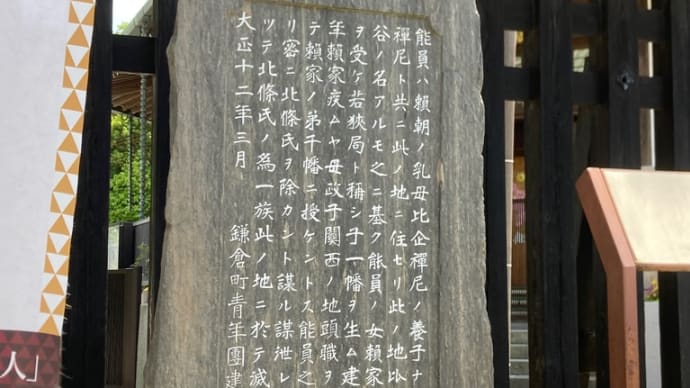 能員ハ賴朝ノ乳母比企禪尼ノ養子ナ
禪尼ト共ニ此ノ地ニ住セリ此ノ地比
谷ノ名アルモ之ニ基ク能員ノ女賴家
ヲ受ケ若狭局ト稱シ子一幡ヲ生ム建
年賴家疾ムヤ母政子關西ノ地頭職ヲ
テ賴家ノ弟千幡ニ授ケントス能員之
リ密ニ北條氏ヲ除カント謀ル謀泄レ
ツテ北條氏ノ為一族此ノ地ニ於テ滅
大正十二年三月 鎌倉町青年團建
人」